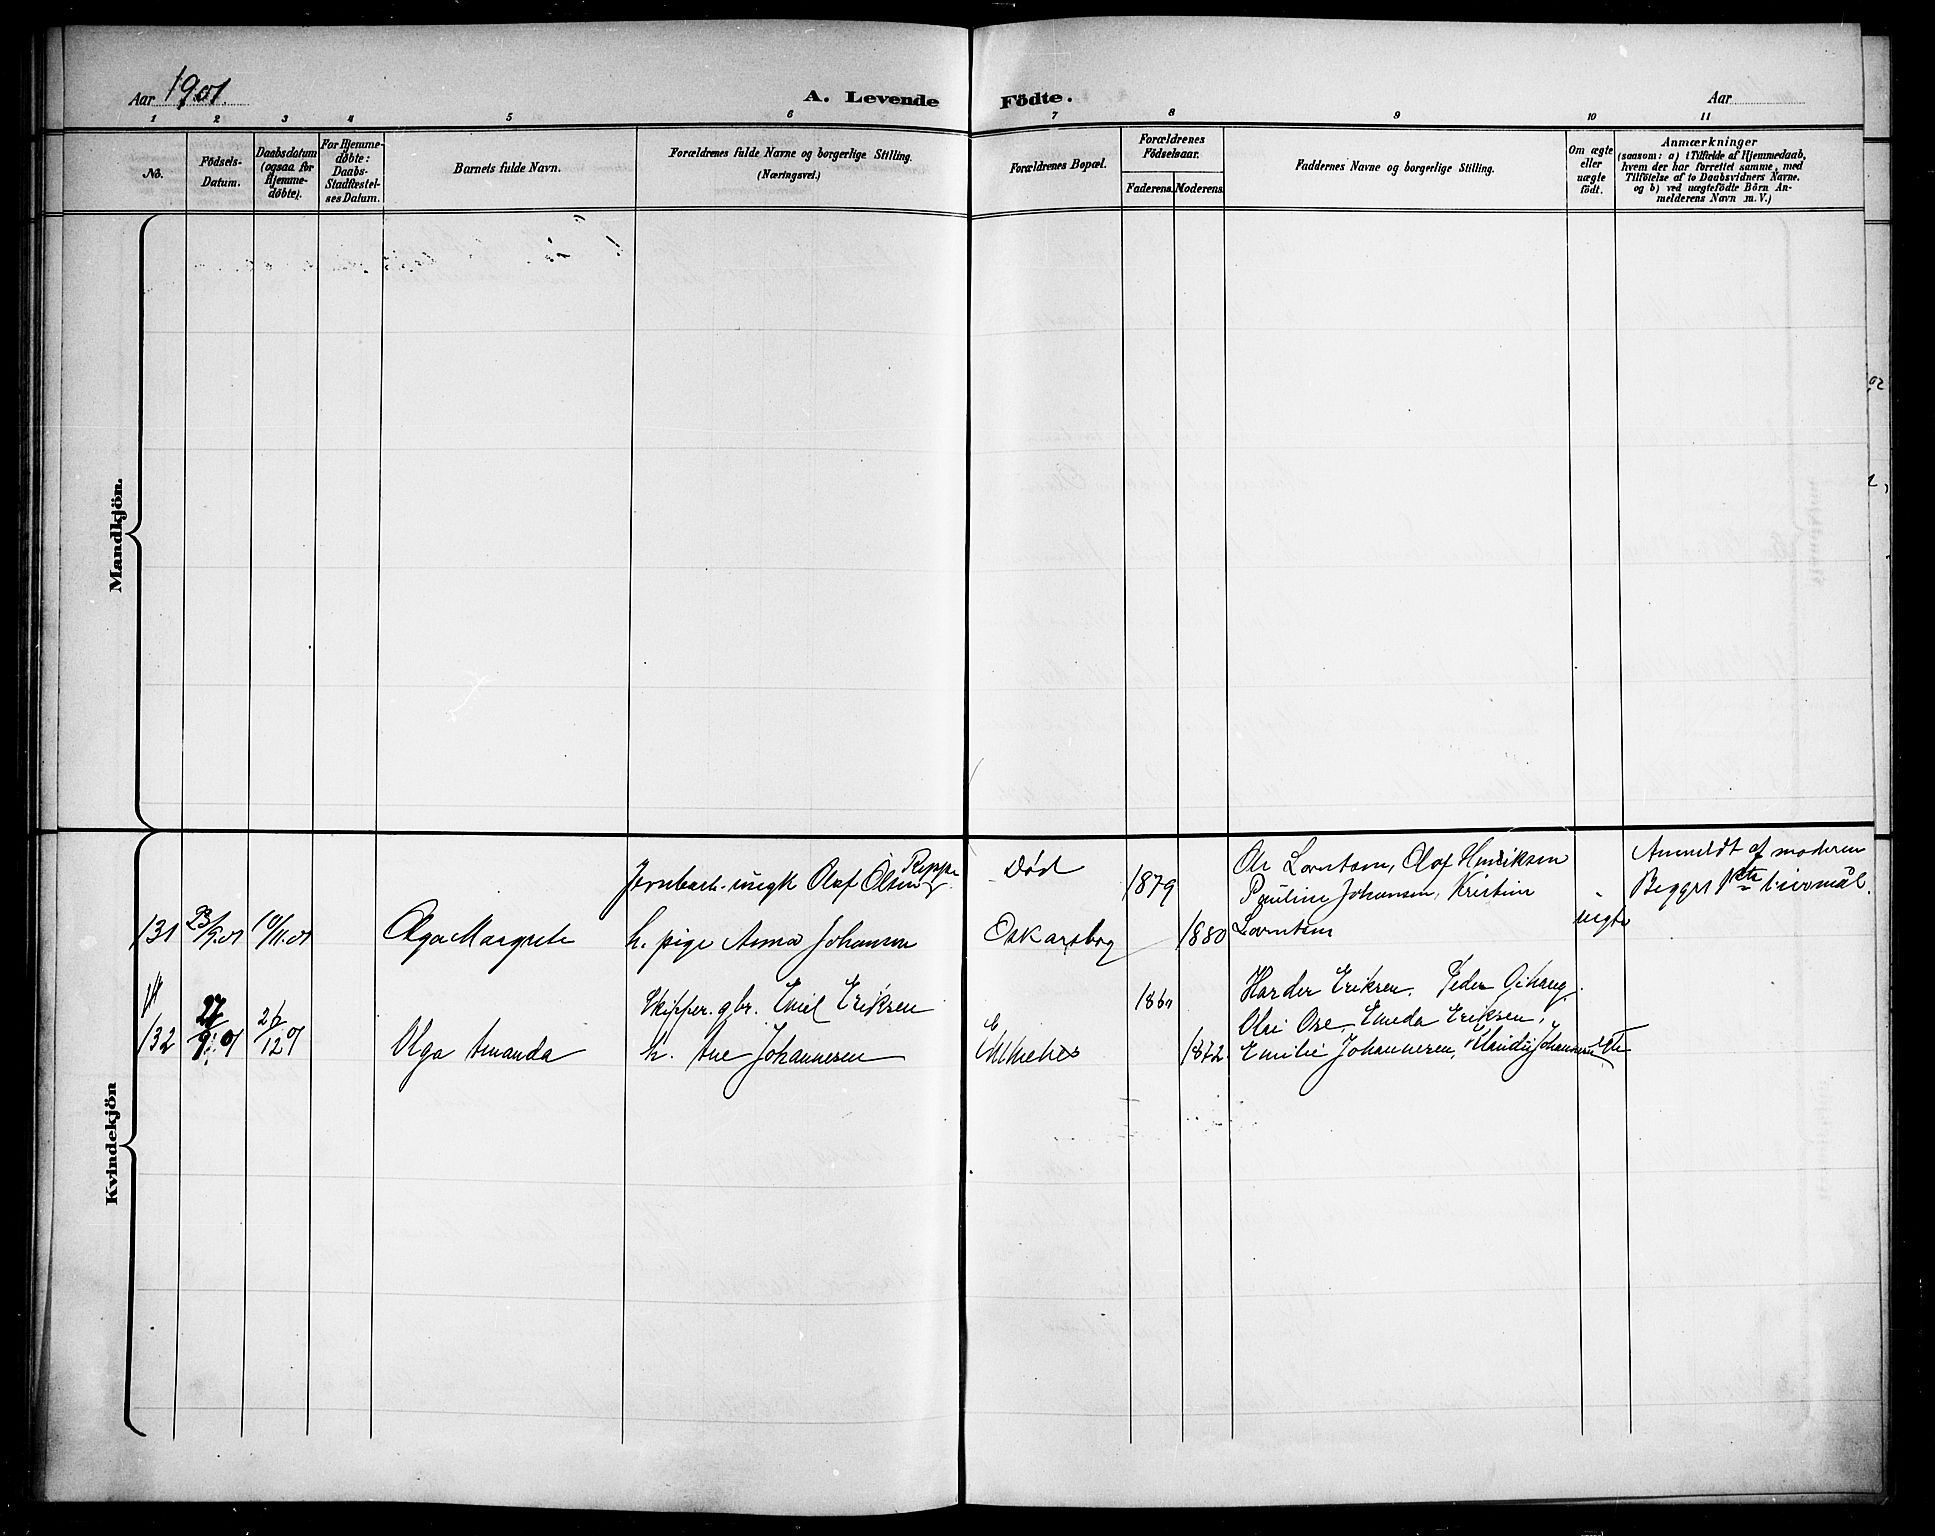 Aar 1901.
A. Levende Födte.
Aar
1 2 3 4 5 6 7 8 9 10 11
No.
Födsels-
Datum.
Daabsdatum
(ogsaa for
Hjemme-
døbte).
For Hjemme-
døbte:
Daabs-
Stadfæstel-
ses Datum.
Barnets fulde Navn.
Forældrenes fulde Navne og borgerlige Stilling.
(Næringsvei.)
Forældrenes Bopæl.
Forældrenes
Födselsaar.
Faderens. Moderens.
Faddernes Navne og borgerlige Stilling.
Om ægte
eller
uægte
födt.
Anmærkninger
(saasom: a) i Tilfælde af Hjemmedaab,
hvem der har forrettet samme, med
Tilföielse af to Daabsvidners Navne.
og b) ved uægtefödte Börn An-
melderens Navn m. V.)
Mandkjön.
Kvindekjön
131
23/9.01
10/11.01
Olga Margrete
Olaf Olsen
h. pige Anna Johansen
Død
Oskarsborg
1879
1880
Olaf Henriksen
Pauline Johansen, Kristine
uegte
Anmeldt af moderen
Begges 1ste leiermål.
132
27/9.01
26/12 01
Olga Amanda
Skipper. gbr. Emil Eriksen
h. Ane Johannesen
1872
Harder Eriksen. Peder
Emeda Eriksen,
Emilie Johannesen, Klaudie Johannesen